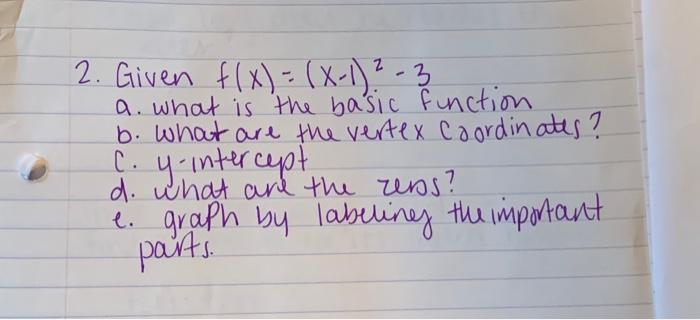 2. Given f(x) = (x-1)² - 3
a. what is the basic function
b. what are the vertex coordinates?
c. y-intercept
d. what are the zeros?
e. graph by labeling the important
parts.